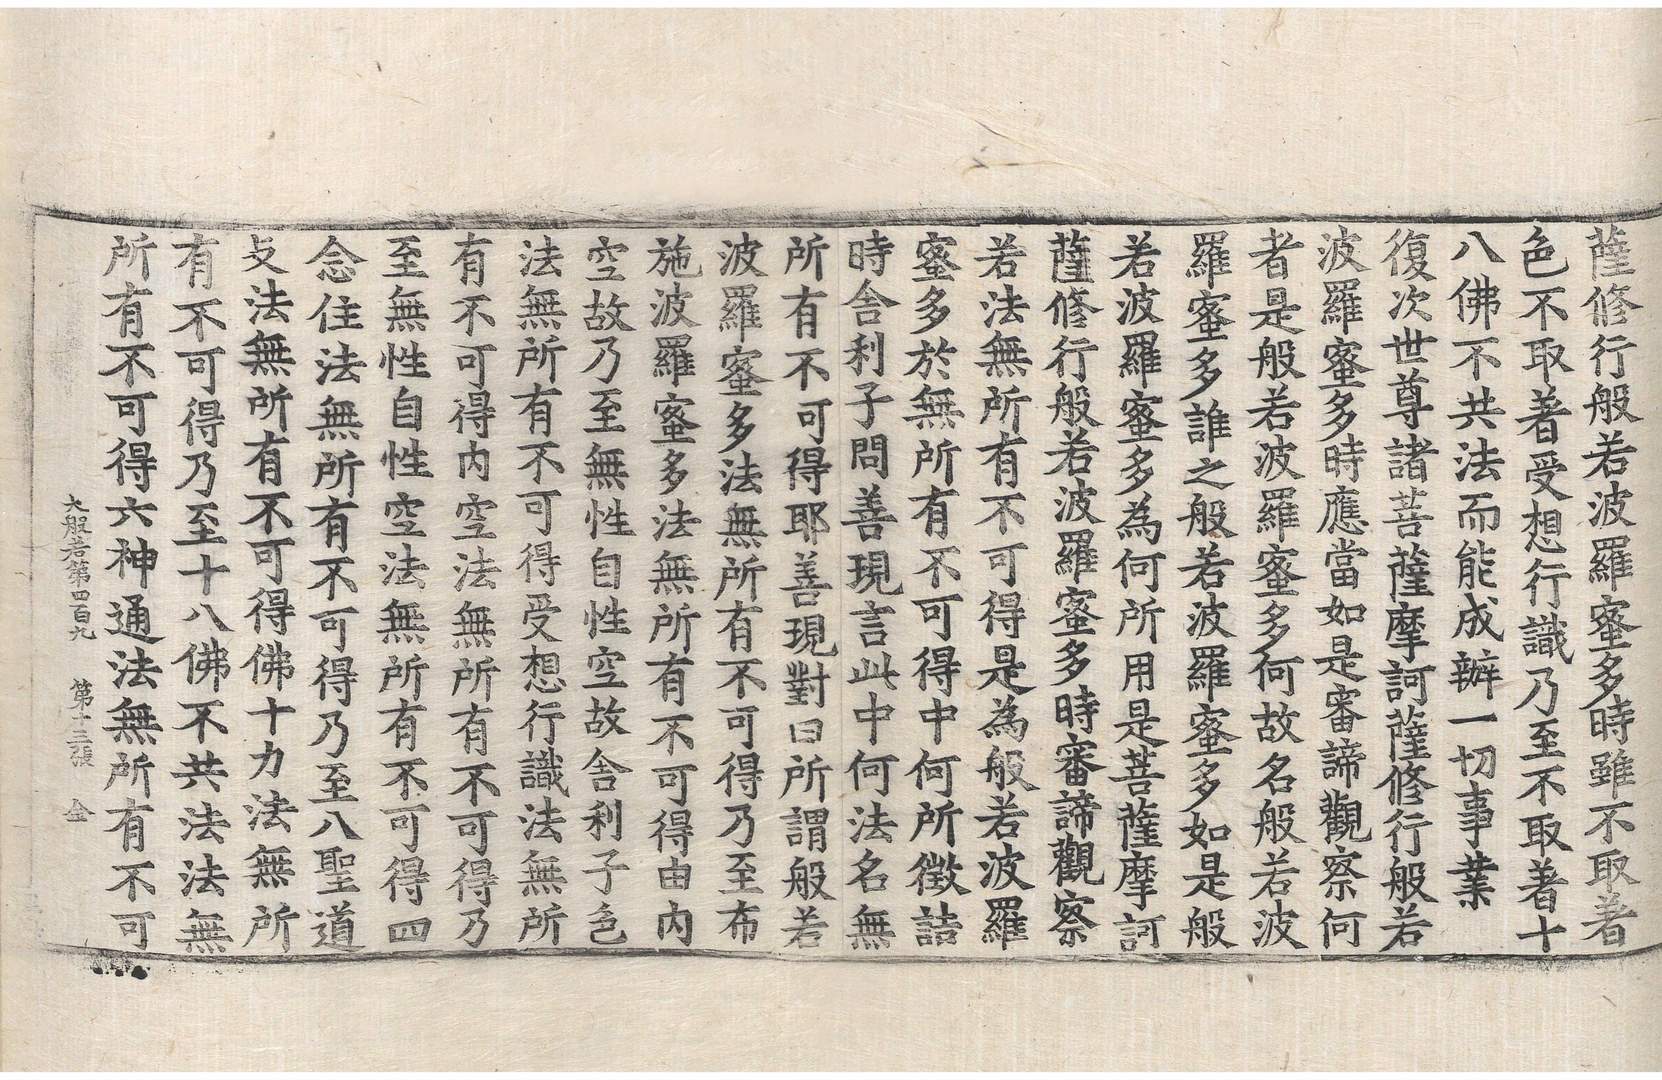 薩修行般若波羅蜜多時雖不取著
色不取著受想行識乃至不取著十
八佛不共法而能成辦一切事業
復次世尊諸菩薩摩訶薩修行般若
波羅蜜多時應當如是審諦觀察何
者是般若波羅蜜多何故名般若波
羅蜜多誰之般若波羅蜜多如是般
若波羅蜜多為何所用是菩薩摩訶
薩修行般若波羅蜜多時審諦觀察
若法無所有不可得是為般若波羅
蜜多於無所有不可得中何所徵詰
時舍利子問善現言此中何法名無
所有不可得耶善現對曰所謂般若
波羅蜜多法無所有不可得乃至布
施波羅蜜多法無所有不可得由內
空故乃至無性自性空故舍利子色
法無所有不可得受想行識法無所
有不可得內空法無所有不可得乃
至無性自性空法無所有不可得四
念住法無所有不可得乃至八聖道
支法無所有不可得佛十力法無所
有不可得乃至十八佛不共法法無
所有不可得六神通法無所有不可
大般若第四百九 第十三張 金